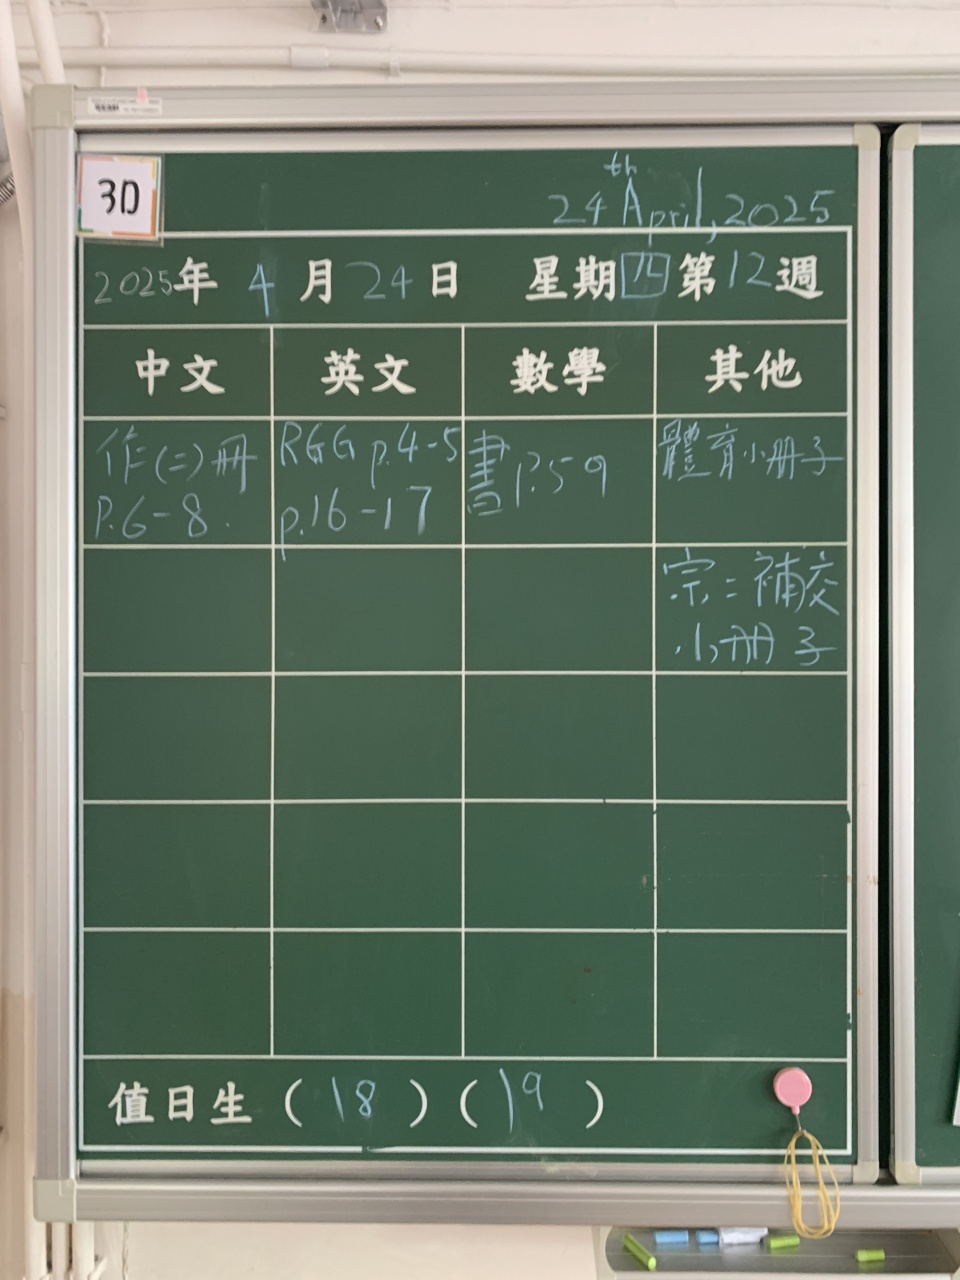 3D
24th April, 2025
2025年 4月24日 星期四 第12週
中文 英文 數學 其他
作(二)冊
P.6-8.
RGG p.4-5
p.16-17
書P.59
體育小冊子
宗:補交
小冊子
值日生 (18) (19)